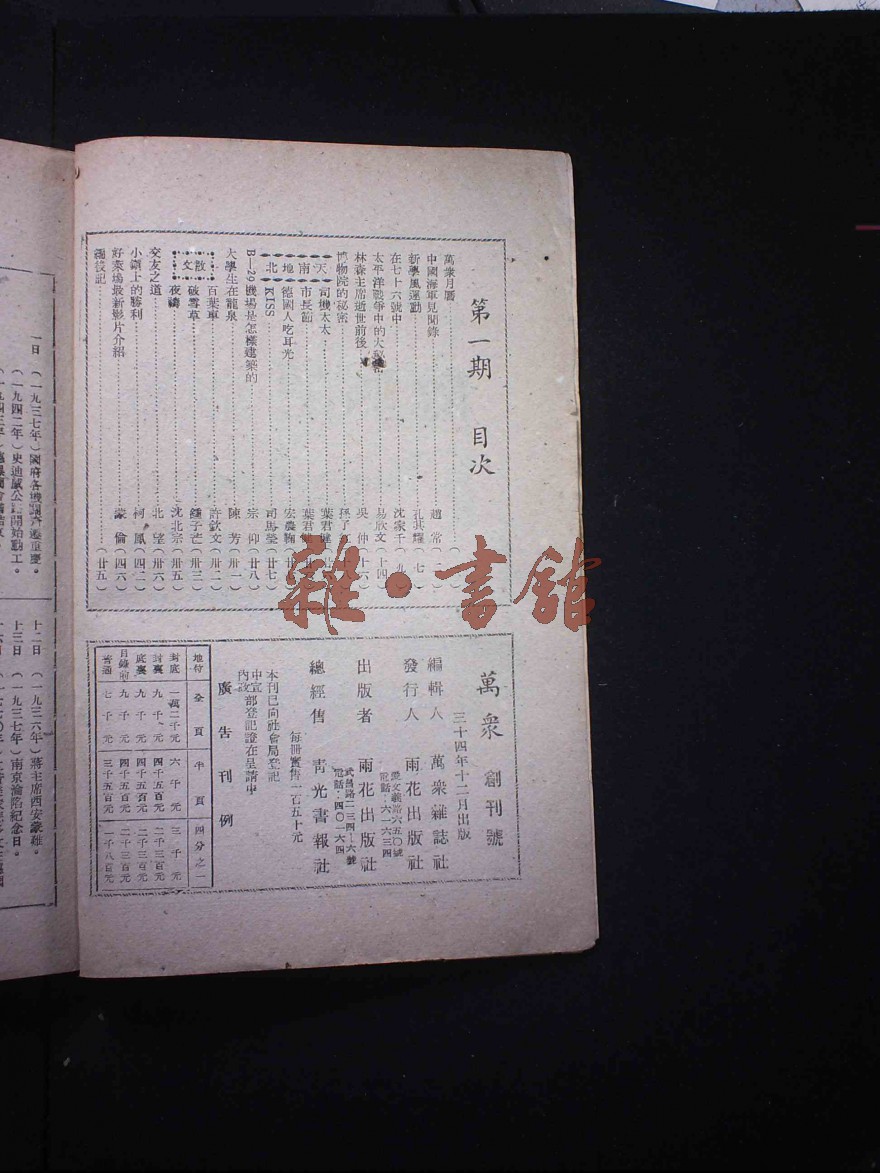 第一期 目次
萬衆月曆
中國海軍見聞錄 趙常
新學風運動 孔其耀(七)
在七十六號中 沈家千(九)
太平洋戰爭中的大 易欣文(十四)
林森主席逝世前後 吳仲(十六)
博物院的秘密 孫了紅
天南地北
司機太太 葉君健
市長節 葉君健
德國人吃耳光 宏農
KISS 司馬瑩(廿七)
B—29機場是怎樣建築的 宗仰(廿八)
大學生在龍泉 陳芳(卅一)
散文
百葉車 許欽文(卅二)
破雪草 鍾子芒(卅三)
夜禱 沈北宗(卅五)
交友之道 北望(卅六)
小鎭上的勝利 柯鳳(四二)
好萊塢最新影片介紹 蒙倫(四六)
編後記 (廿五)
萬衆 創刊號
三十四年十二月出版
編輯人 萬衆雜誌社
發行人 雨花出版社
愛文義路六五〇號
電話:六一六三四
出版者 雨花出版社
武昌路二三四—六號
電話:四〇一六四
總經售 靑光書報社
每冊實售一百五十元
本刊已向社會局登記
中宣部登記證在呈請中
內政
廣告刊例
地位 全頁 半頁 四分之一
封底 一萬二千元 六千元 三千元
封裏 九千元 四千五百元 二千三百元
底裏 九千元 四千五百元 二千三百元
目錄前 九千元 四千五百元 二千三百元
普通 七千元 三千五百元 一千八百元
一日(一九三七年)國府各機關齊遷重慶。
(一九四二年)史迪威公路開始動工。
十二日(一九三六年)蔣主席西安蒙難。
十三日(一九三七年)南京淪陷紀念日。
雜·書館